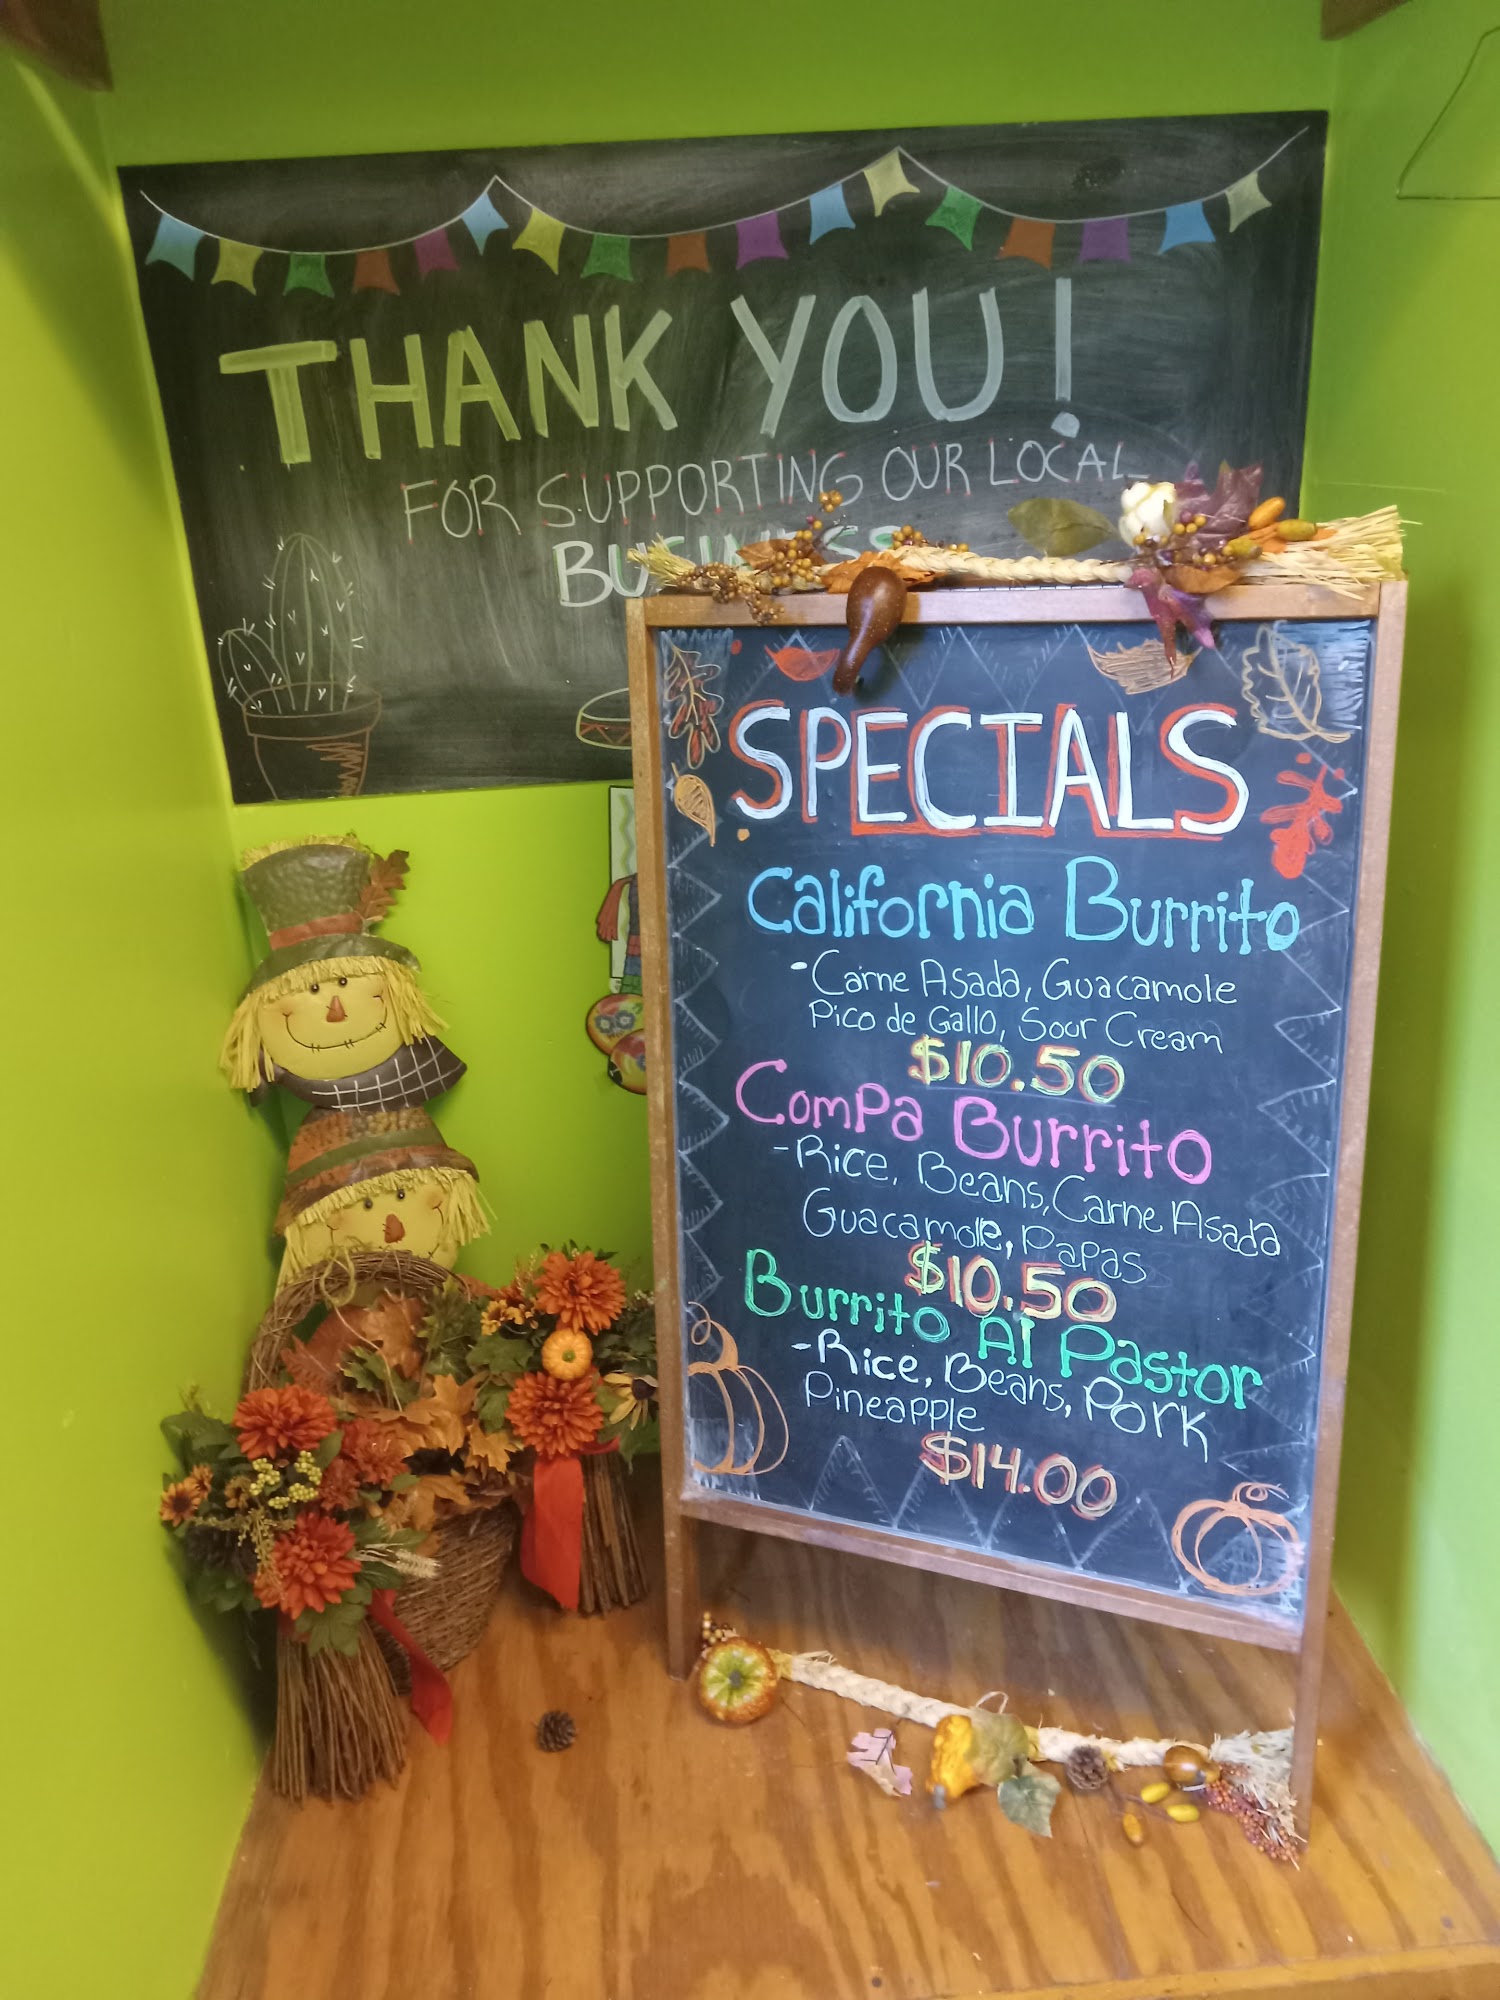 THANK YOU!
FOR SUPPORTING OUR LOCAL
BUSINESS
SPECIALS
California Burrito
•Carne Asada, Guacamole
Pico de Gallo, Sour Cream
$10.50
Compa Burrito
-Rice, Beans, Carne Asada
Guacamole, Papas
$10.50
Burrito Al Pastor
-Rice, Beans, Pork
Pineapple
$14.00